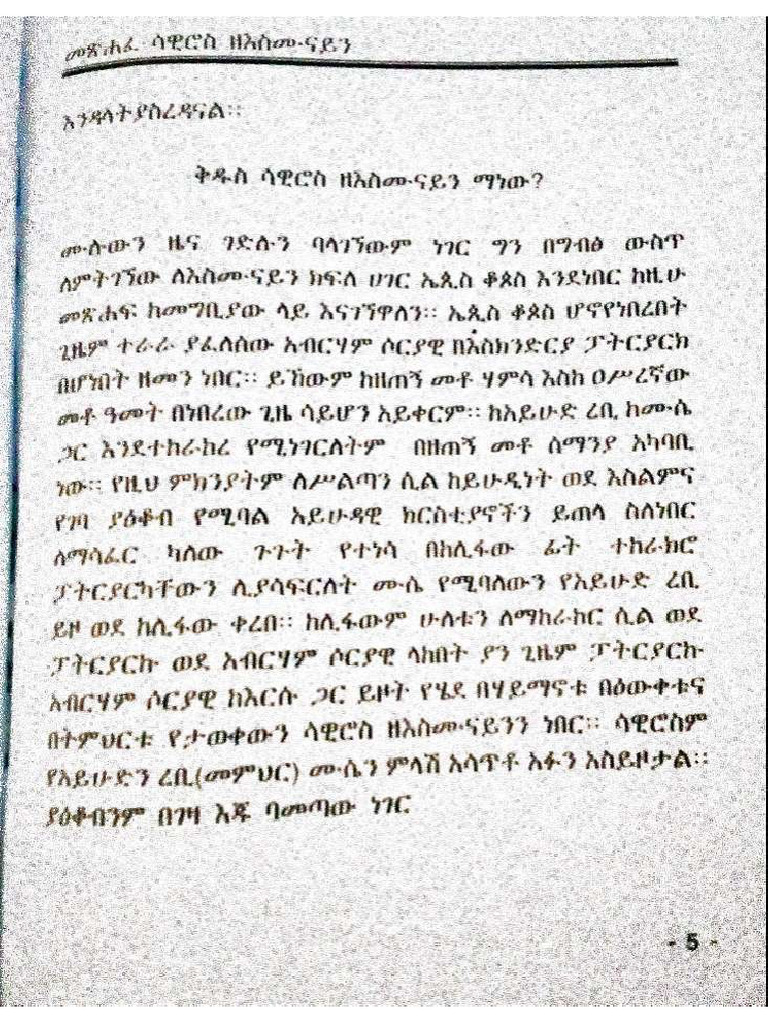 መጽሐፈ ሳዊሮስ ዘእስሙናይን
እንዳላትያስረዳናል።
ቅዱስ ሳዊሮስ ዘእስሙናይን ማነው?
ሙሉውን ዜና ገድሉን ባላገኘውም ነገር ግን በግብፅ ውስጥ
ለምትገኘው ለእስሙናይን ክፍለ ሀገር ኤጲስ ቆጶስ እንደነበር ከዚሁ
መጽሐፍ ከመግቢያው ላይ እናገኘዋለን። ኤጲስ ቆጶስ ሆኖየነበረበት
ጊዜም ተራራ ያፈለሰው አብርሃም ሶርያዊ በእስክንድርያ ፓትርያርክ
በሆነበት ዘመን ነበር። ይኸውም ከዘጠኝ መቶ ሃምሳ እስከ ዐሥረኛው
መቶ ዓመት በነበረው ጊዜ ሳይሆን አይቀርም። ከአይሁድ ረቢ ከሙሴ
ጋር እንደተከራከረ የሚነገርለትም በዘጠኝ መቶ ሰማንያ አካባቢ
ነው። የዚህ ምክንያትም ለሥልጣን ሲል ከይሁዲነት ወደ እስልምና
የገባ ያዕቆብ የሚባል አይሁዳዊ ክርስቲያኖችን ይጠላ ስለነበር
ለማሳፈር ካለው ጉጉት የተነሳ በከሊፋው ፊት ተከራክሮ
ፓትርያርካቸውን ሊያሳፍርለት ሙሴ የሚባለውን የአይሁድ ረቢ
ይዞ ወደ ከሊፋው ቀረበ። ከሊፋውም ሁለቱን ለማከራከር ሲል ወደ
ፓትርያርኩ ወደ አብርሃም ሶርያዊ ላከበት ያን ጊዜም ፓትርያርኩ
አብርሃም ሶርያዊ ከእርሱ ጋር ይዞት የሄደ በሃይማኖቱ በዕውቀቱና
በትምህርቱ የታወቀውን ሳዊሮስ ዘእስሙናይንን ነበር። ሳዊሮስም
የአይሁድን ረቢ(መምህር) ሙሴን ምላሽ አሳጥቶ አፉን አስይዞታል።
ያዕቆብንም በገዛ እጁ ባመጣው ነገር
- 5 -